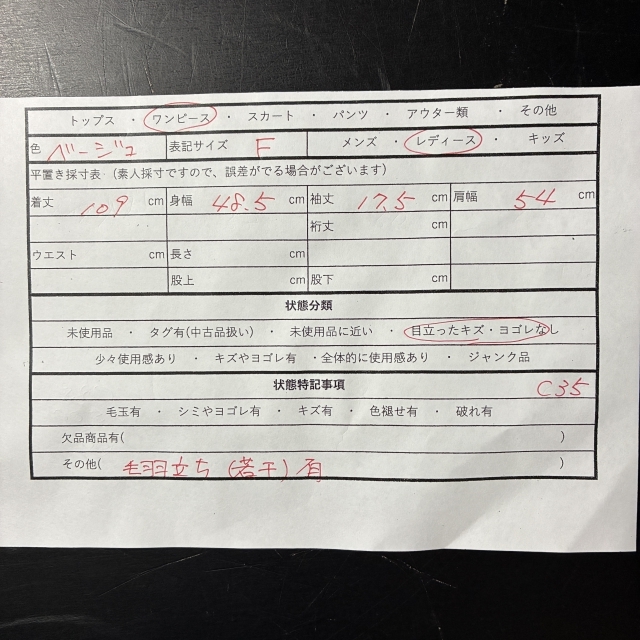 トップス ・ ワンピース ・ スカート ・ パンツ ・ アウター類 ・ その他
色 ベージュ 表記サイズ F メンズ ・ レディース ・ キッズ
平置き採寸表（素人採寸ですので、誤差がでる場合がございます）
着丈 109 cm 身幅 48.5 cm 袖丈 17.5 cm 肩幅 54 cm
裄丈 cm
ウエスト cm 長さ cm
股上 cm 股下 cm
状態分類
未使用品 ・ タグ有(中古品扱い) ・ 未使用品に近い ・ 目立ったキズ・ヨゴレなし
少々使用感あり ・ キズやヨゴレ有 ・全体的に使用感あり ・ ジャンク品
状態特記事項
C35
毛玉有 ・ シミやヨゴレ有 ・ キズ有 ・ 色褪せ有 ・ 破れ有
欠品商品有( )
その他( 毛羽立ち（若干）有 )